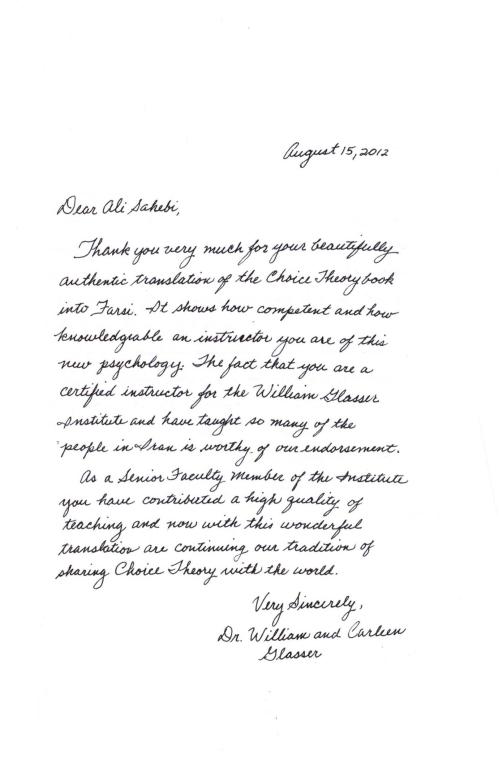 August 15, 2012
Dear Ali Sahebi,
Thank you very much for your beautifully
authentic translation of the Choice Theory book
into Farsi. It shows how competent and how
knowledgeable an instructor you are of this
new psychology. The fact that you are a
certified instructor for the William Glasser
Institute and have taught so many of the
people in Iran is worthy of our endorsement.
As a Senior Faculty Member of the Institute
you have contributed a high quality of
teaching and now with this wonderful
translation are continuing our tradition of
sharing Choice Theory with the world.
Very Sincerely,
Dr. William and Carleen
Glasser